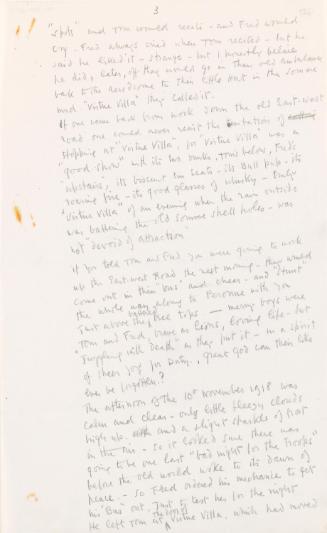 3
"spots" and Tom would recite - and Fred would
cry - Fred always cried when Tom recited - but he
said he liked it - strange - but I honestly believe
he did, later, off they would go in their old ambulance
back to the aerodrome to their little out in the Somme
mud "Virtue Villa" they called it.
If one came back from work down the old East-West
road one could never resist the temptation of
stopping at "Virtue Villa", for Virtue Villa was a
good show - with its two bunks, Tom's below, Fred's
upstairs, its basement seats - its Bull pup - its
roaring fire - its good glasses of whisky - truly
"Virtue Villa" of an evening when the rain outside
was battering the old Somme shell holes - was
not "devoid of attraction"
If you told Tom and Fred you were going to work
up the East-west Road the next morning - they would
come out in their 'bus' and cheer - and "stunt"
the whole way along to Peronne with you
just above the tree tops - merry boys were
Tom and Fred, brave as lions, loving life - but
"juggling with death" as they put it - in a spirit
of sheer joy for Duty, great God can their like
ever be forgotten?
The afternoon of the 10th November 1918 was
calm and clear - only little fleezy clouds
high up. and a slight sparkle of frost
in the air - so it looked sure there was
going to be one last "bad night for the troops"
before the old world woke to its dawn of
peace - so Fred ordered his mechanics to get
his 'Bus' out, just to test her for the night
He left Tom at Virtue Villa, which had moved